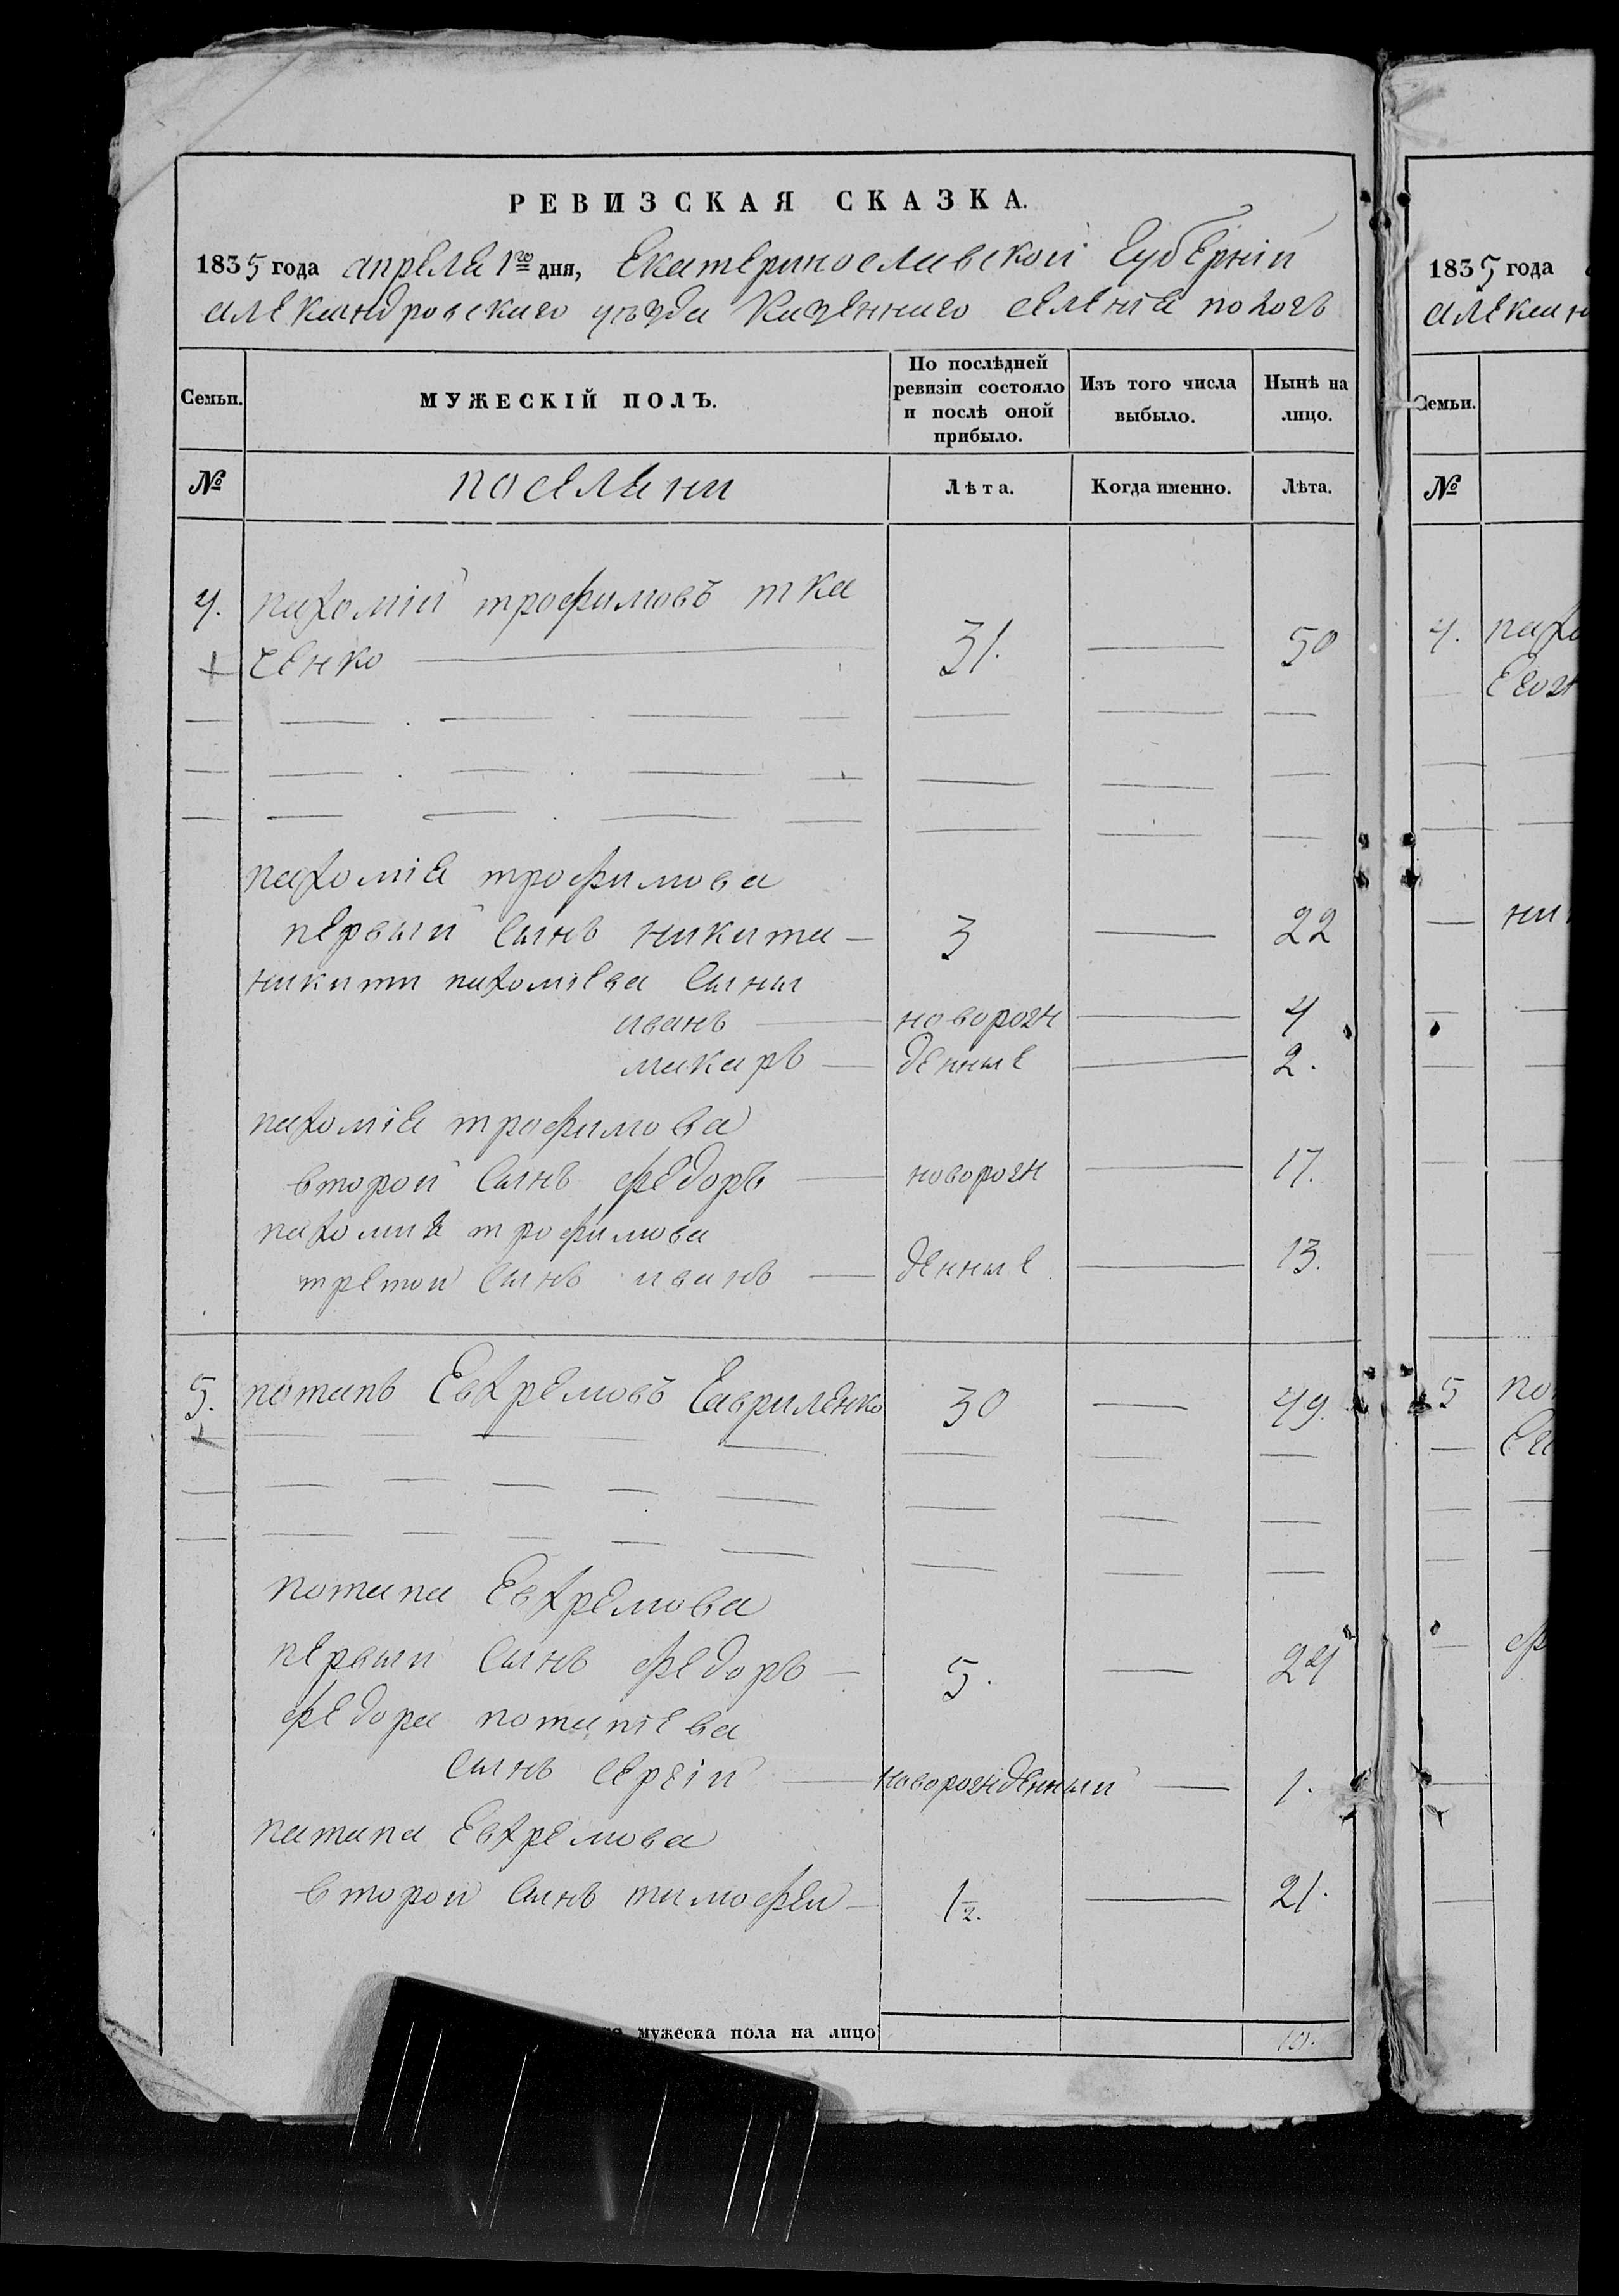 РЕВИЗСКАЯ СКАЗКА.
1835 года апреля 1го дня, Екатеринославской Губернии
александровскаго уѣзда Казеннаго селенія пологъ
Семьи.
МУЖЕСКІЙ ПОЛЪ.
По послѣдней ревизіи состояло и послѣ оной прибыло.
Изъ того числа выбыло.
Нынѣ на лицо.
№
поселяни
Лѣта.
Когда именно.
Лѣта.
4. пахомій трофимовъ тка
ченко 31. 50
пахомія трофимова
первый сынъ никита 3 22
никиты пахоміева сыны
иванъ новорож 4
макаръ денные 2.
пахомія трофимова
второй сынъ федоръ новорож 17.
пахомия трофимова
третой сынъ иванъ денные 13.
5. потапъ Евхремовъ Гавриленко 30 49.
потапа Евхремова
первый сынъ федоръ 5. 24
федора потапіева
сынъ сергій новорожденный 1.
патапа Евхремова
второй сынъ тимофей 1/2. 21.
мужеска пола на лицо 10.
1835 года
алексан
Семьи.
№
4. пахо
5 по